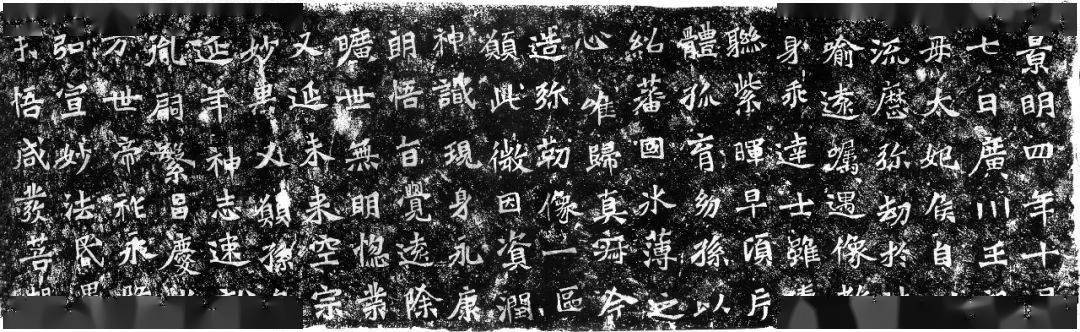 景明四年十月
七日廣川王
母太妃侯自
流歷弥劫於
喻遠囑遇像教
身乖達士雖
聯紫暉早頃片
體孤育幼孫以
紹蕃國冰薄之
心唯歸真寂今
造弥勒像一區
願此微因資潤
神識現身永康
朗悟旨覺遠除
曠世無明惚業
又延未來空宗
妙果又願孫
延年神志速就
胤嗣繁昌慶
万世帝祚永隆
弘宣妙法昏愚
悟咸發菩